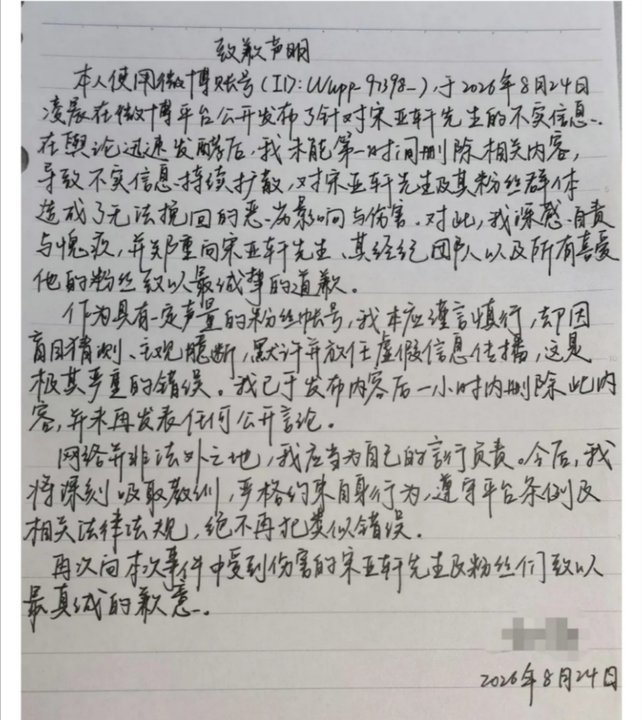 致歉声明
本人使用微博账号(ID:Wupp-91398-),于2026年8月24日
凌晨在微博平台公开发布了针对宋亚轩先生的不实信息。
在舆论迅速发酵后,我未能第一时间删除相关内容,
导致不实信息持续扩散,对宋亚轩先生及其粉丝群体
造成了无法挽回的恶劣影响与伤害。对此,我深感自责
与愧疚,并郑重向宋亚轩先生、其经纪团队以及所有喜爱
他的粉丝致以最诚挚的道歉。
作为具有一定声量的粉丝帐号,我本应谨言慎行,却因
盲目猜测、主观臆断,默许并放任虚假信息传播,这是
极其严重的错误。我已于发布内容后一小时内删除此内
容,并未再发表任何公开言论。
网络并非法外之地,我应当为自己的言行负责。今后,我
将深刻吸取教训,严格约束自身行为,遵守平台条例及
相关法律法规,绝不再犯类似错误。
再次向本次事件中受到伤害的宋亚轩先生及粉丝们致以
最真诚的歉意。
2026年8月24日